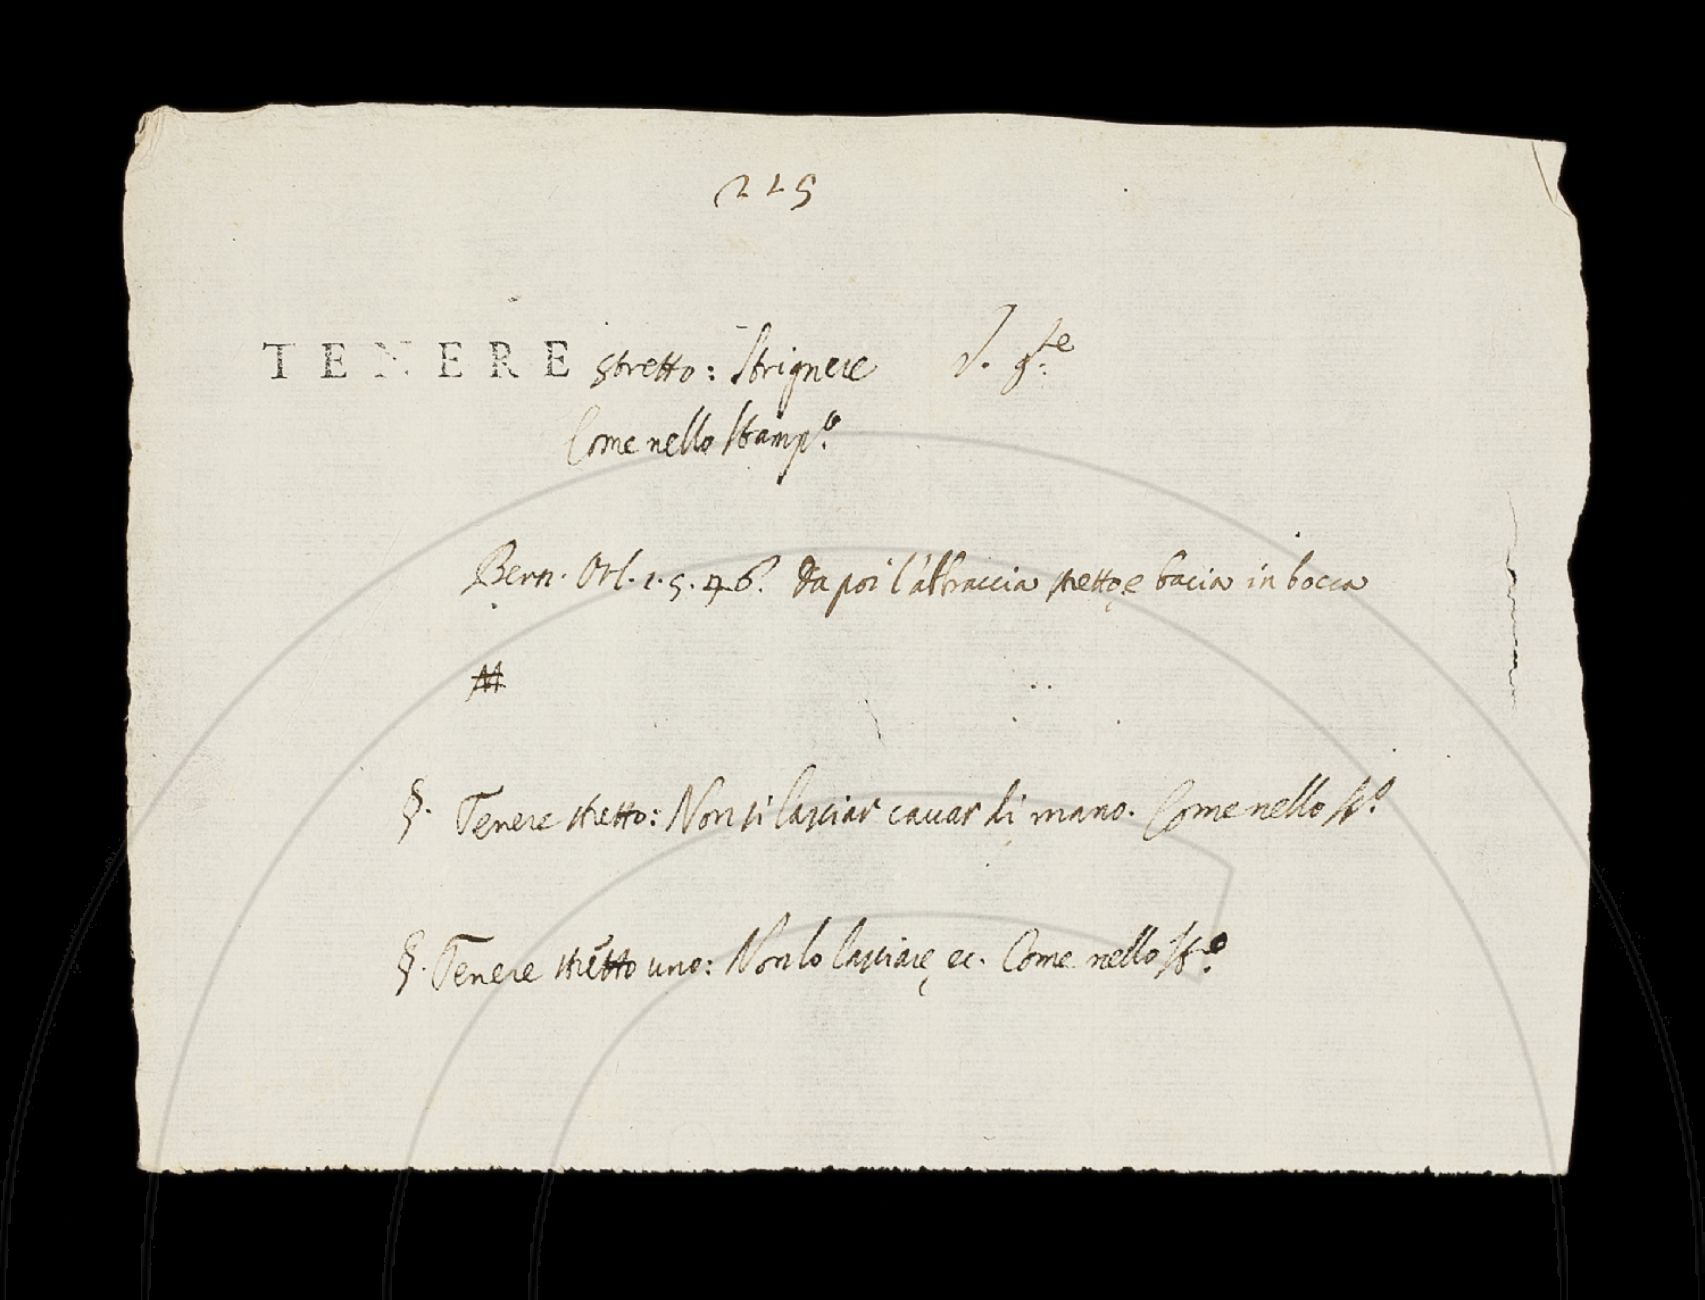 225
TENERE stretto: Strignere
Come nello Stamp.o
Bern. Orl. 1. 5. 46. Da poi l'abbraccia stretto, e bacia in bocca
§. Tenere stretto: Non si lasciar cavar di mano. Come nello St.o
§. Tenere stretto uno: Non lo lasciare, ec. Come nello St.o